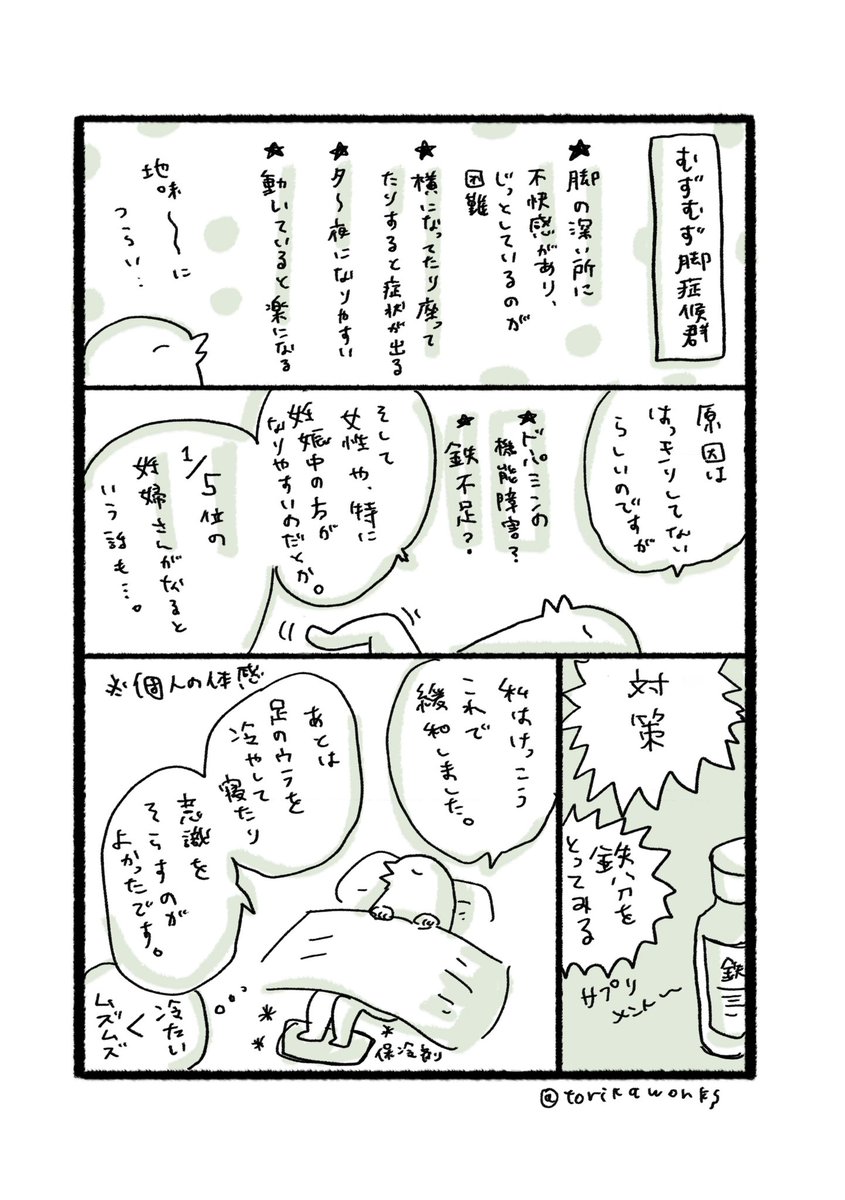 むずむず脚症候群
★脚の深い所に
不快感があり、
じっとしているのが
困難
★横になってたり座って
たりすると症状が出る
★夕〜夜になりやすい
★動いていると楽になる
地味〜〜に
つらい…
原因は
はっきりしてない
らしいのですが
★ドパミンの
機能障害？
★鉄不足？
そして
女性や、特に
妊娠中の方が
なりやすいのだとか。
1/5位の
妊婦さんがなると
いう説も…。
対策
鉄分を
とってみる
サプリ
メント〜
鉄
私はけっこう
これで
緩和しました。
※個人の体感
あとは
足のウラを
冷やして
寝たり
意識を
そらすのが
よかったです。
保冷剤
冷たい
＞
ムズムズ
@torikaworks